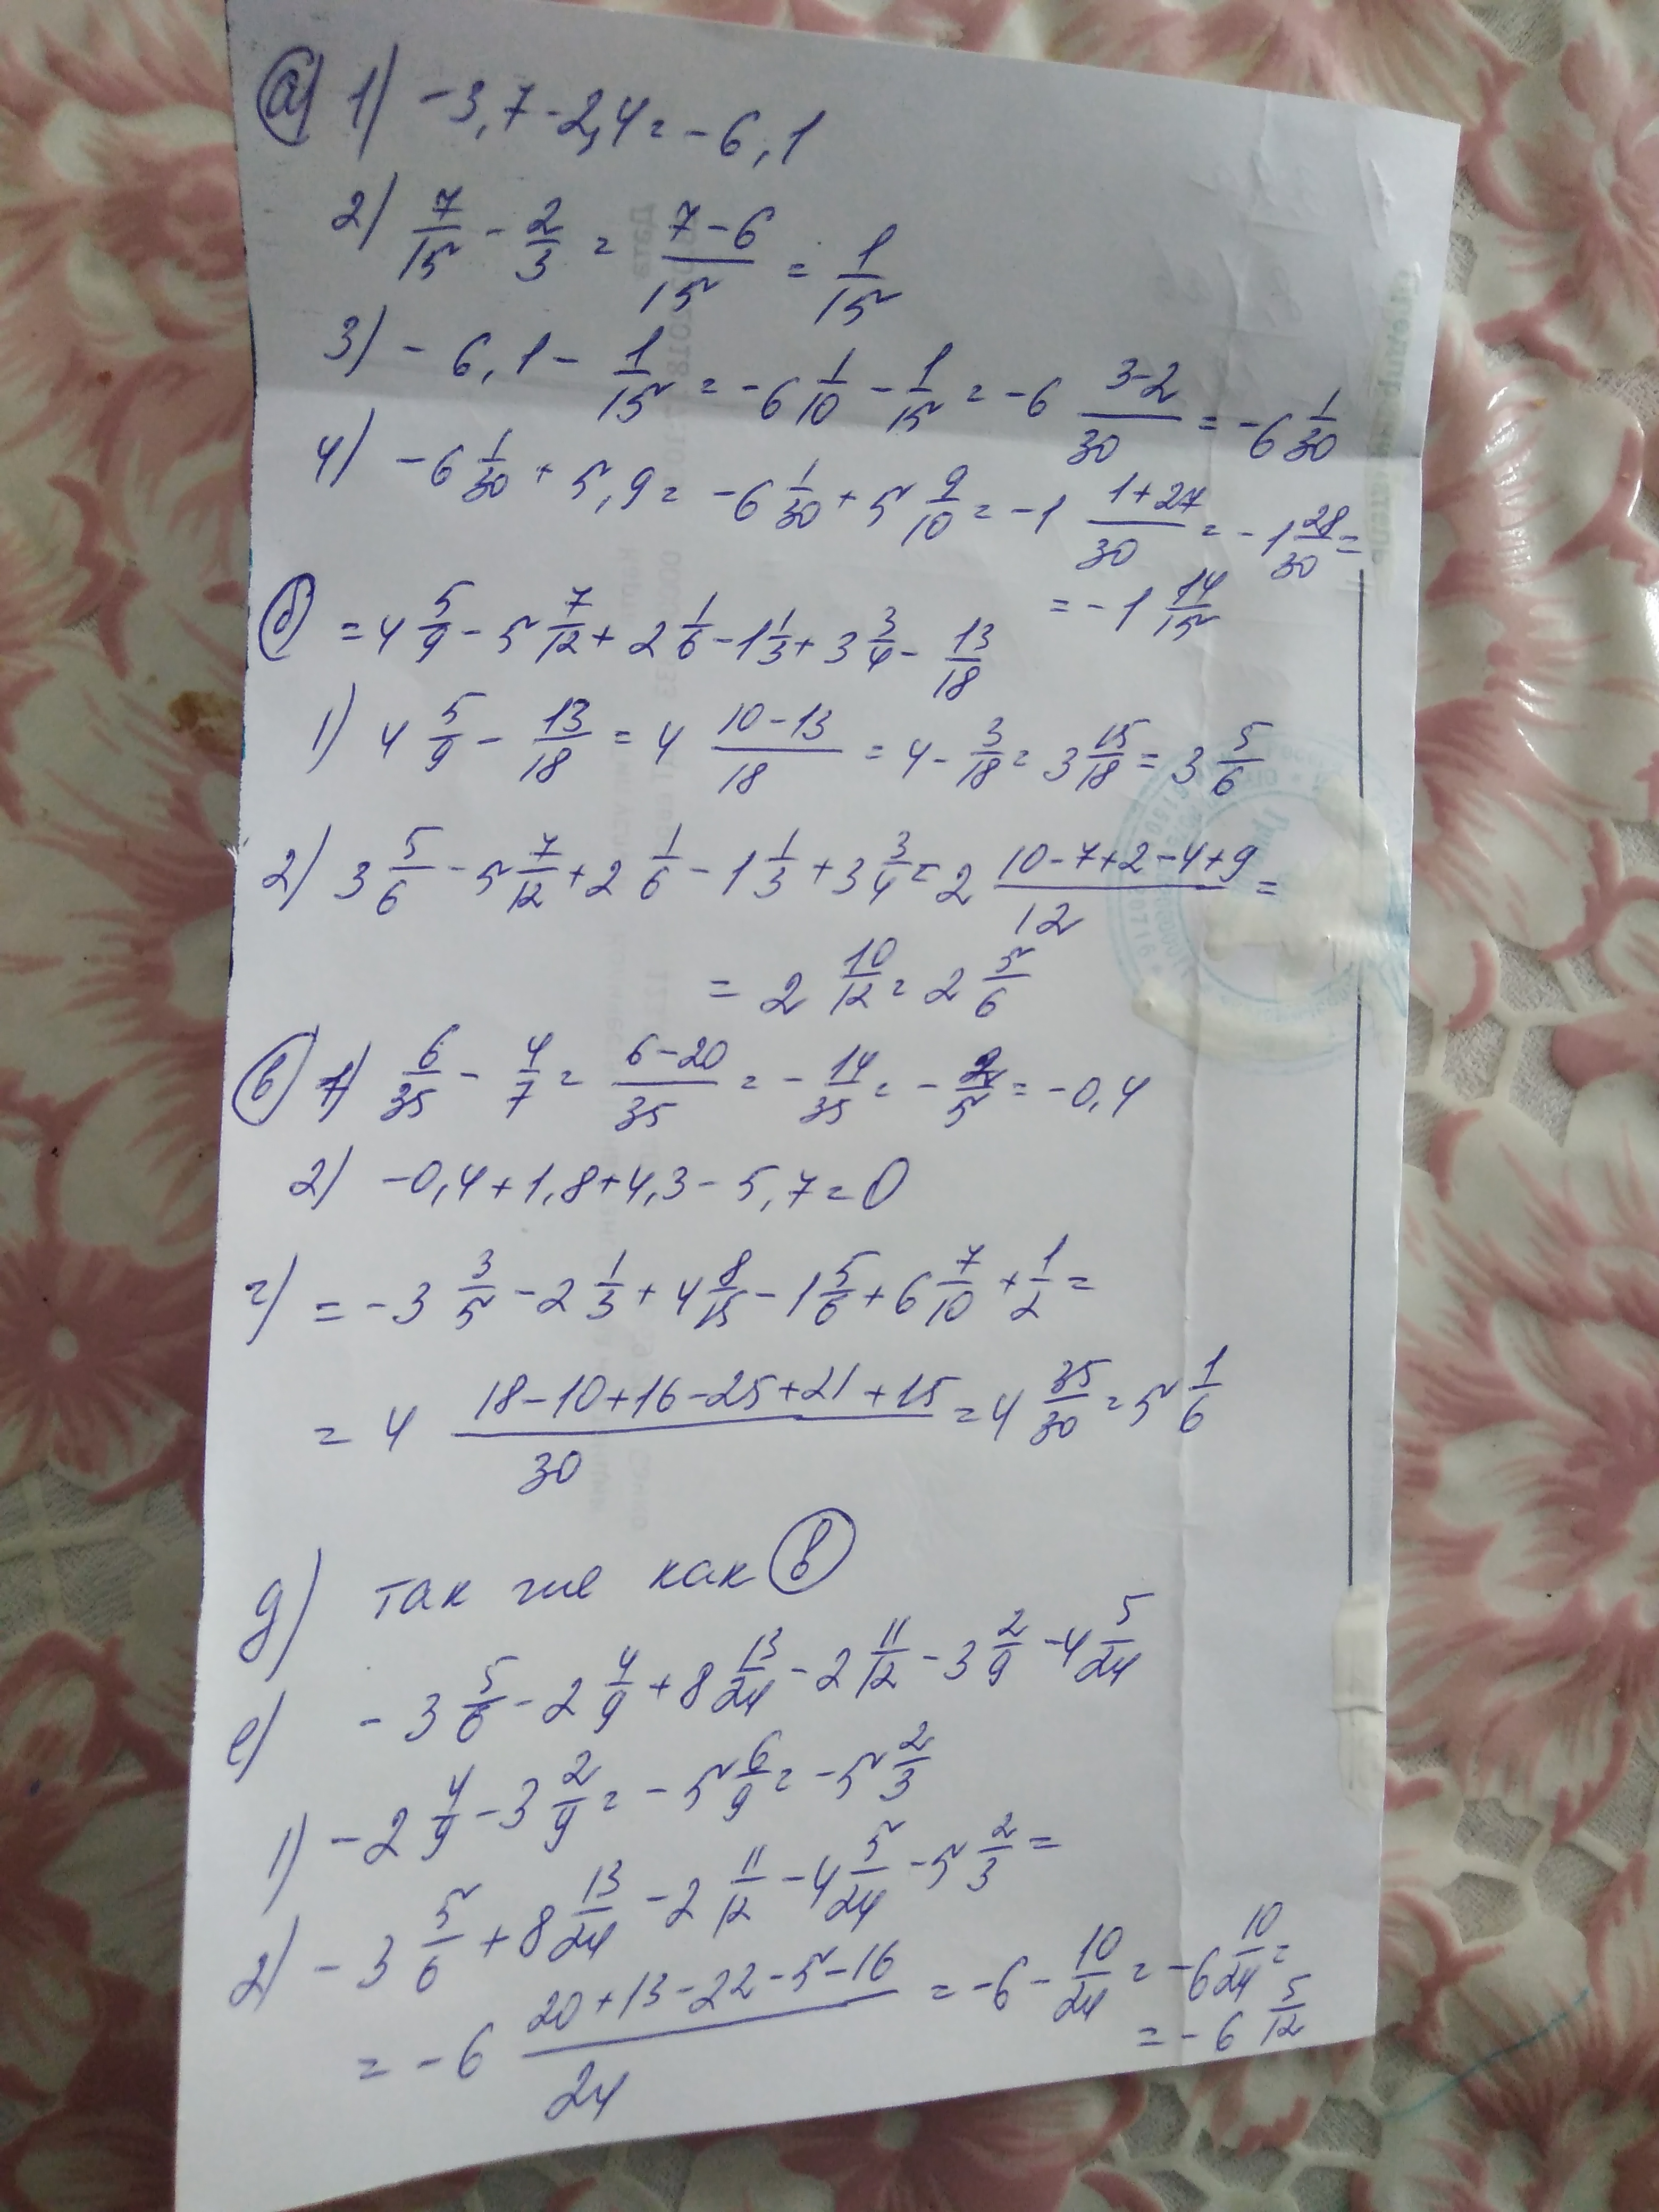 а) 1) -3,7-2,4=-6,1
2) 7/15 - 2/3 = (7-6)/15 = 1/15
3) -6,1 - 1/15 = -6 1/10 - 1/15 = -6 (3-2)/30 = -6 1/30
4) -6 1/30 + 5,9 = -6 1/30 + 5 9/10 = -1 (1+27)/30 = -1 28/30 =
= -1 14/15
б) = 4 5/9 - 5 7/12 + 2 1/6 - 1 1/3 + 3 3/4 - 13/18
1) 4 5/9 - 13/18 = 4 (10-13)/18 = 4 - 3/18 = 3 15/18 = 3 5/6
2) 3 5/6 - 5 7/12 + 2 1/6 - 1 1/3 + 3 3/4 = 2 (10-7+2-4+9)/12 =
= 2 10/12 = 2 5/6
в) 1) 6/35 - 4/7 = (6-20)/35 = - 14/35 = - 2/5 = -0,4
2) -0,4+1,8+4,3-5,7=0
г) = -3 3/5 - 2 1/3 + 4 8/15 - 1 5/6 + 6 7/10 + 1/2 =
= 4 (18-10+16-25+21+15)/30 = 4 35/30 = 5 1/6
д) так же как в
е) -3 5/6 - 2 4/9 + 8 13/24 - 2 11/12 - 3 2/9 - 4 5/24
1) -2 4/9 - 3 2/9 = -5 6/9 = -5 2/3
2) -3 5/6 + 8 13/24 - 2 11/12 - 4 5/24 - 5 2/3 =
= -6 (20+13-22-5-16)/24 = -6 - 10/24 = -6 10/24 =
= -6 5/12